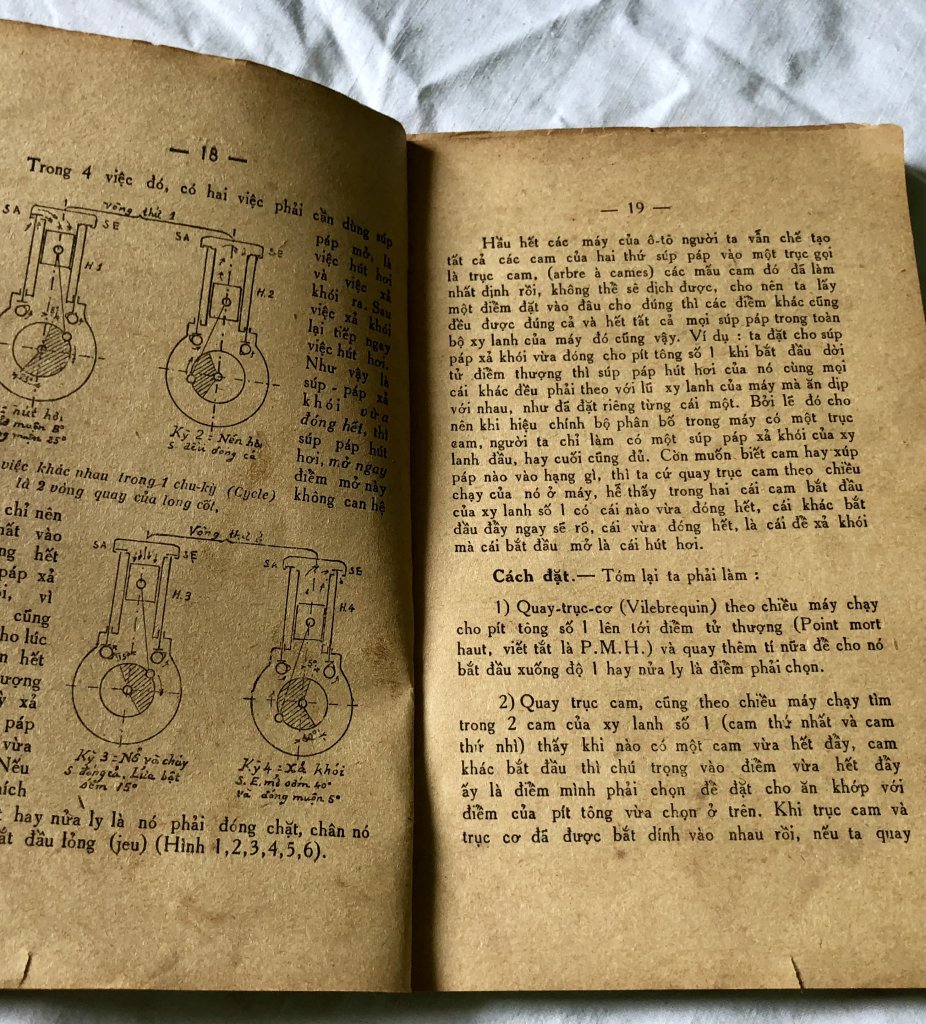 — 18 —
Trong 4 việc đó, có hai việc phải cần dùng súp
páp mở, là
việc hút hơi
và việc xả
khói ra. Sau
việc xả khói
lại tiếp ngay
việc hút hơi.
Như vậy là
súp - páp xả
khói vừa
đóng hết, thì
súp páp hút
hơi, mở ngay
điểm mở này
không can hệ
Vòng thứ 1
SA
SE
H.1
SA
SE
H.2
hút hơi,
muộn 5°
muộn 25°
Kỳ 2 = Nén hơi
S. đều đóng cả
việc khác nhau trong 1 chu-kỳ (Cycle)
là 2 vòng quay của long cốt,
chỉ nên
vào
hết
páp xả
vì
cũng
cho lúc
hết
xả
páp
vừa
Nếu
Vòng thứ 2
SA
SE
H.3
SA
SE
H.4
Kỳ 3 = Nổ và cháy
S. đóng cả, Lửa bật
sớm 15°
Kỳ 4 = Xả khói
S.E. mở sớm 40°
và đóng muộn 5°
hay nửa ly là nó phải đóng chặt, chân nó
bắt đầu lỏng (jeu) (Hình 1,2,3,4,5,6).
— 19 —
Hầu hết các máy của ô-tô người ta vẫn chế tạo
tất cả các cam của hai thứ súp páp vào một trục gọi
là trục cam, (arbre à cames) các mấu cam đó đã làm
nhất định rồi, không thể sê dịch được, cho nên ta lấy
một điểm đặt vào đâu cho đúng thì các điểm khác cũng
đều được đúng cả và hết tất cả mọi súp páp trong toàn
bộ xy lanh của máy đó cũng vậy. Ví dụ : ta đặt cho súp
páp xả khói vừa đóng cho pít tông số 1 khi bắt đầu dời
tử điểm thượng thì súp páp hút hơi của nó cùng mọi
cái khác đều phải theo với lũ xy lanh của máy mà ăn dịp
với nhau, như đã đặt riêng từng cái một. Bởi lẽ đó cho
nên khi hiệu chính bộ phân bổ trong máy có một trục
cam, người ta chỉ làm có một súp páp xả khói của xy
lanh đầu, hay cuối cũng đủ. Còn muốn biết cam hay xúp
páp nào vào hạng gì, thì ta cứ quay trục cam theo chiều
chạy của nó ở máy, hễ thấy trong hai cái cam bắt đầu
của xy lanh số 1 có cái nào vừa đóng hết, cái khác bắt
đầu đẩy ngay sẽ rõ, cái vừa đóng hết, là cái để xả khói
mà cái bắt đầu mở là cái hút hơi.
Cách đặt.— Tóm lại ta phải làm :
1) Quay-trục-cơ (Vilebrequin) theo chiều máy chạy
cho pít tông số 1 lên tới điểm tử thượng (Point mort
haut, viết tắt là P.M.H.) và quay thêm tí nữa để cho nó
bắt đầu xuống độ 1 hay nửa ly là điểm phải chọn.
2) Quay trục cam, cũng theo chiều máy chạy tìm
trong 2 cam của xy lanh số 1 (cam thứ nhất và cam
thứ nhì) thấy khi nào có một cam vừa hết đẩy, cam
khác bắt đầu thì chú trọng vào điểm vừa hết đẩy
ấy là điểm mình phải chọn để đặt cho ăn khớp với
điểm của pít tông vừa chọn ở trên. Khi trục cam và
trục cơ đã được bắt dính vào nhau rồi, nếu ta quay